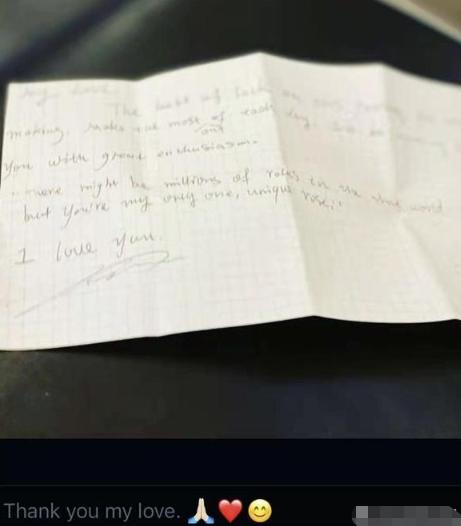 My love
The best of
making, makes the most of each day, so
out
you with great enthusiasm.
"There might be millions of roses in the
but you're my only one, unique rose".
I love you.
Thank you my love. 🙏🏻❤️😊